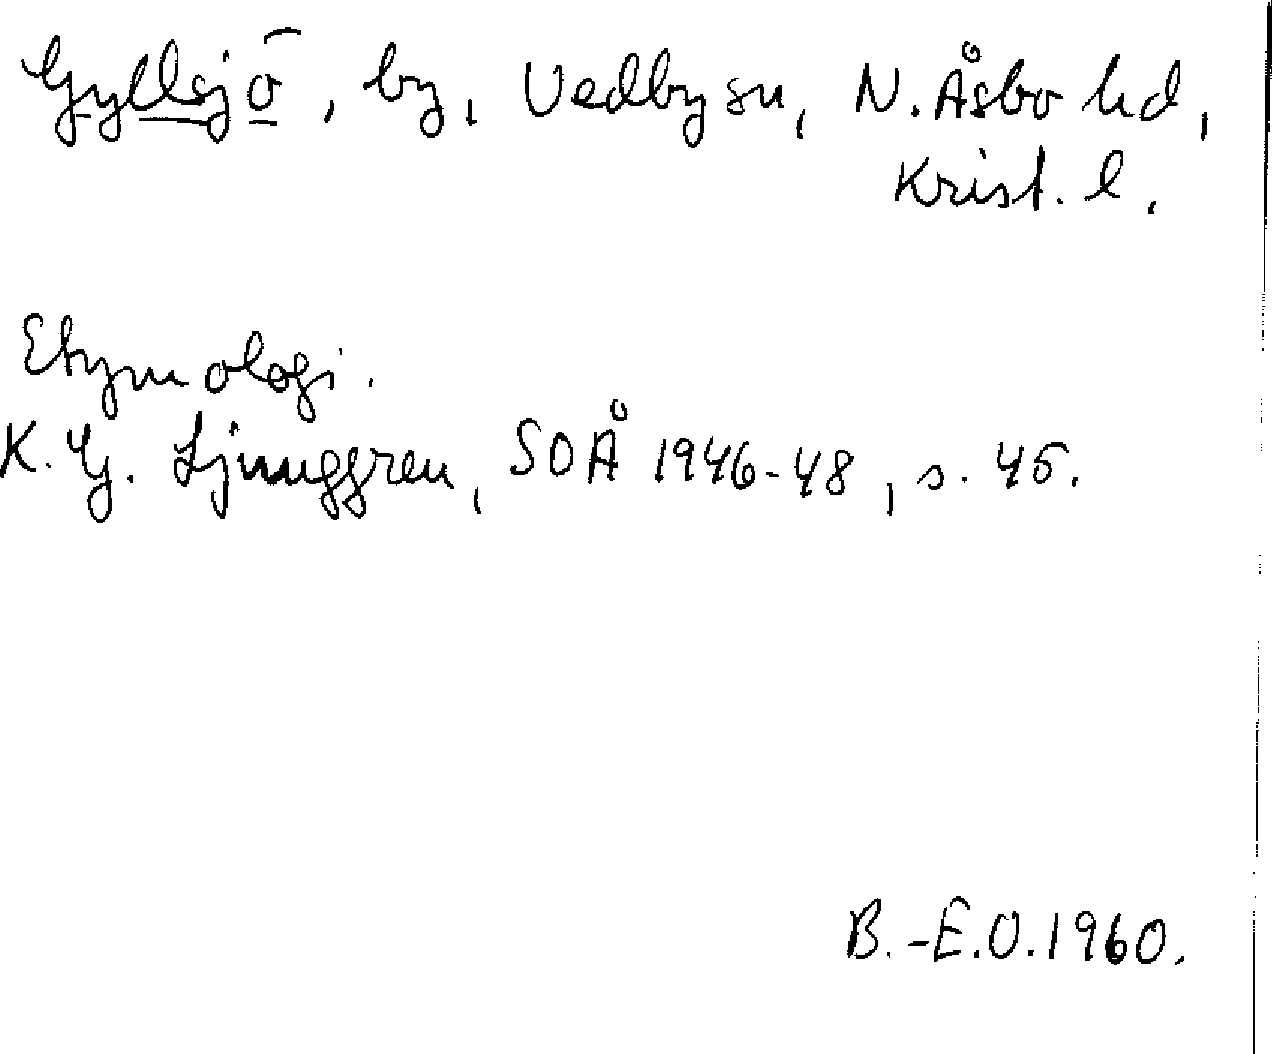 Gyllsjö, by, Vedby sn, N. Åsbo hd,
Krist. l.
Etymologi.
K. G. Ljunggren, SOÅ 1946-48, s. 45.
B.-E.O. 1960.